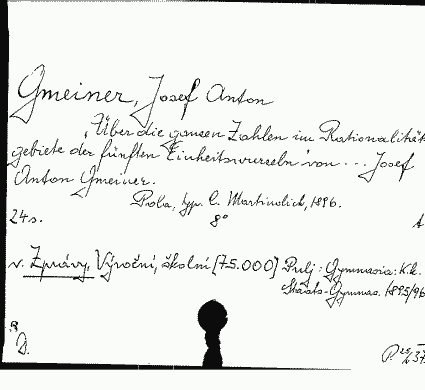 Gmeiner, Josef Anton
„Über die ganzen Zahlen im Rationalitäts
gebiete der fünften Einheitswurzeln" von ... Josef
Anton Gmeiner.
Pola, typ. C. Martinolich, 1896.
24 s. 8°
v. Zprávy, Výroční, školní [75.000] Pulj: Gymnasia: K.k.
Staats-Gymnas. 1895/96
D.